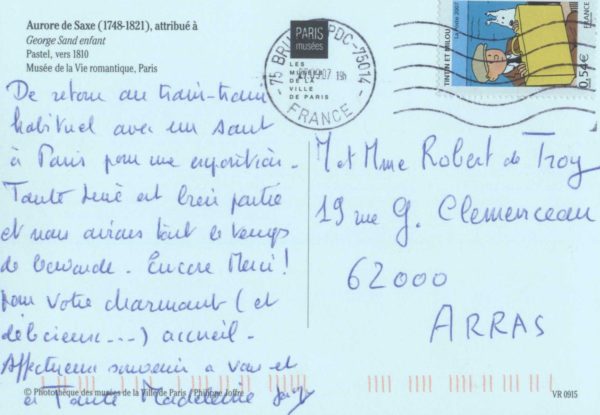 Aurore de Saxe (1748-1821), attribué à
George Sand enfant
Pastel, vers 1810
Musée de la Vie romantique, Paris
PARIS
musées
LES
DE LA
VILLE
DE PARIS
75 PDC-75014
07 19h
FRANCE
TINTIN ET MILOU
0,54€
FRANCE
De retour au train-train
habituel avec un saut
à Paris pour une exposition.
Tante est bien partie
et nous avions tout le temps
de . Encore Merci!
pour votre charmant (et
délicieux...) accueil.
Affectueux souvenir a vous et
à Tante Madeleine
M et Mme Robert de Troy
19 rue G. Clemenceau
62000
ARRAS
© Photothèque des musées de la Ville de Paris / Philippe Joffre
VR 0915